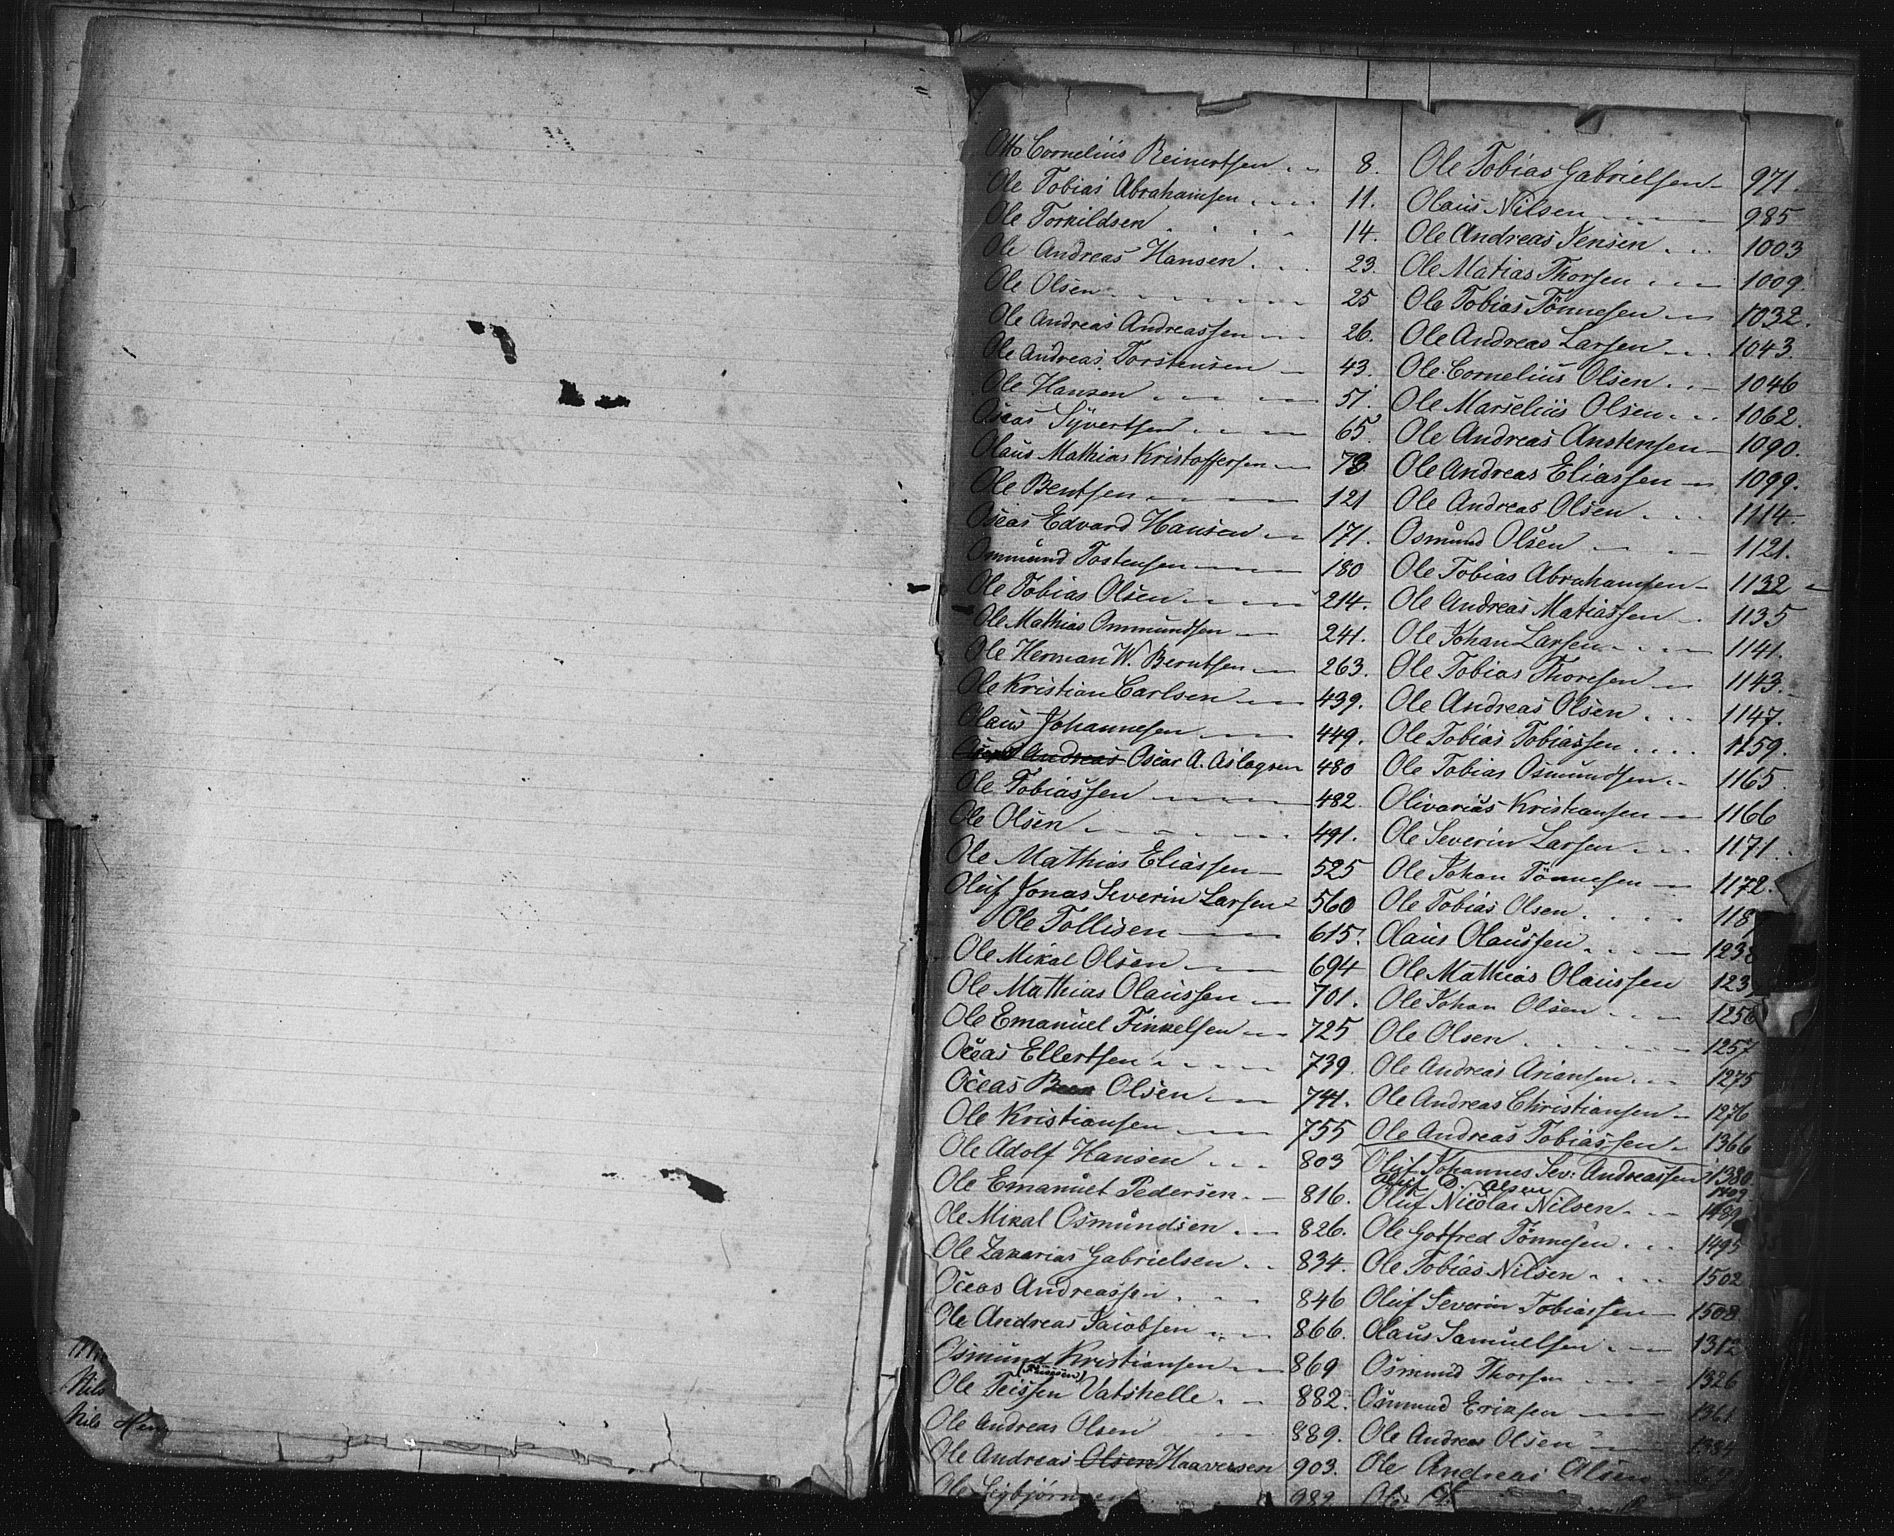 Nils
Nils Hen
Otto Cornelius Reinertsen 8.
Ole Tobias Abrahamsen 11.
Ole Torkildsen 14.
Ole Andreas Hansen 23.
Ole Olsen 25
Ole Andreas Andreassen 26.
Ole Andreas Torstensen 43.
Ole Hansen 51.
Oseas Syvertsen 65.
Olaus Mathias Kristoffersen 78
Ole Bentsen 121
Oseas Edvard Hansen 171.
Ommund Tostensen 180
Ole Tobias Olsen 214.
Ole Mathias Ommundsen 241.
Ole Herman W. Berntsen 263.
Ole Kristian Carlsen 439.
Olaus Johannesen 449.
Andreas Oscar A. Aslagsen 480
Ole Tobiassen 482.
Ole Olsen 491.
Ole Mathias Eliassen 525
Oluf Jonas Severin Larsen 560
Ole Tollisen 615.
Ole Mikal Olsen 694
Ole Mathias Olaussen 701.
Ole Emanuel Finkelsen 725
Oceas Ellertsen 739.
Oceas Olsen 741.
Ole Kristiansen 755
Ole Adolf Hansen 803
Ole Emanuel Pedersen 816.
Ole Mikal Osmundsen 826.
Ole Zakarias Gabrielsen 834.
Oceas Andreassen 846
Ole Andreas Jacobsen 866.
Osmund Kristiansen 869
Ole Teissen Vatshelle 882.
Ole Andreas Olsen 889.
Ole Andreas Olsen Haaversen 903.
Ole 982
Ole Tobias Gabrielsen 971.
Olaus Nilsen 985
Ole Andreas Jensen 1003
Ole Matias Thorsen 1009.
Ole Tobias Tönnesen 1032.
Ole Andreas Larsen 1043.
Ole Cornelius Olsen 1046
Ole Marselius Olsen 1062.
Ole Andreas Anstensen 1090.
Ole Andreas Eliassen 1099.
Ole Andreas Olsen 1114.
Osmund Olsen 1121.
Ole Tobias Abrahamsen 1132
Ole Andreas Matiassen 1135
Ole Johan Larsen 1141.
Ole Tobias Thoresen 1143.
Ole Andreas Olsen 1147.
Ole Tobias Tobiassen 1159.
Ole Tobias Osmundsen 1165
Olivarius Kristiansen 1166
Ole Severin Larsen 1171
Ole Johan Tönnesen 1172.
Ole Tobias Olsen 118
Olaus Olaussen 1238
Ole Mathias Olaussen 123
Ole Johan Olsen 1256
Ole Olsen 1257
Ole Andreas Ariansen 1275
Ole Andreas Christiansen 1276
Ole Andreas Tobiassen 1366
Oluf Johannes Sev: Andreassen 1380
Oluf O. Olsen 1409
Oluf Nicolai Nilsen 1489
Ole Gotfred Tönnesen 1495
Ole Tobias Nilsen 1502
Oluf Severin Tobiassen 1508
Olaus Samuelsen 1312
Osmund Thorsen 1326
Osmund Eriksen 1361
Ole Andreas Olsen 1384
Ole Andreas Olsen
Ole